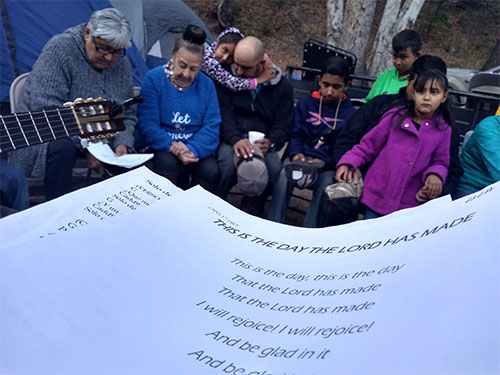 Solo de
Let
THIS IS THE DAY THE LORD HAS MADE
This is the day, this is the day
That the Lord has made
That the Lord has made
I will rejoice! I will rejoice!
And be glad in it
And be glad